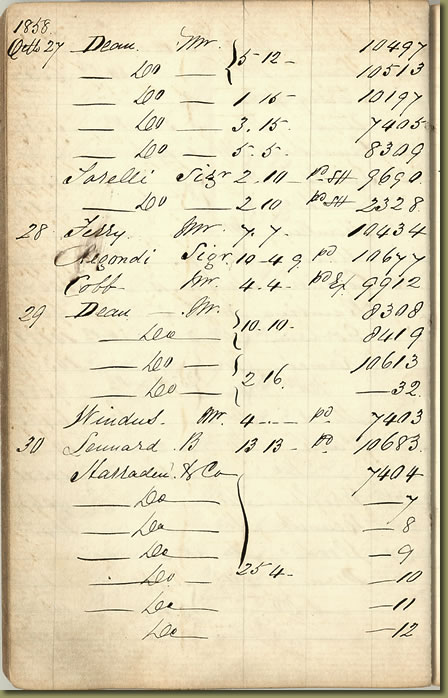 1858
Octb 27 Dean Mr. } 5 12 - 10497
— Do — 10513
— Do — 1 15 - 10197
— Do — 3. 15. 7405
— Do — 5. 5. 8309
Sigr 2 10 - pd SH 9690
— Do — 2 10 pd SH 2328
28 Mr. 7. 7. 10434
Regondi Sigr. 10 - 4 9 pd 10677
Cobb Mr. 4. 4 - pd 9912
29 Dean Mr. } 10. 10. 8308
— Do — 8419
— Do — } 2 16. 10613
— Do — — 32
Windus. Mr. 4 — - pd 7403
30 Lennard B 13 13 - pd 10683
Harraden & Co } 25 4 - 7404
— Do — — 7
— Do — — 8
— Do — — 9
— Do — — 10
— Do — — 11
Do — — 12